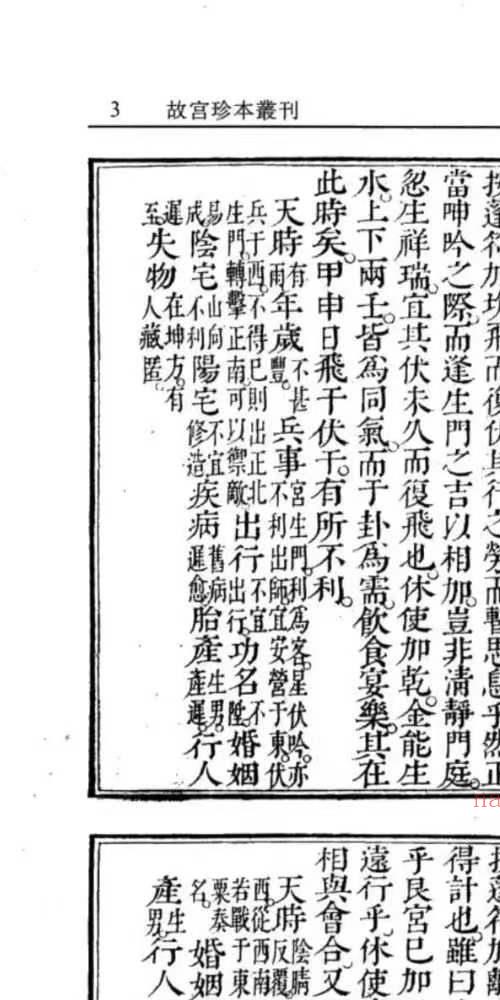 3 故宮珍本叢刊
當呻吟之際而逢生門之吉以相加豈非清靜門庭
忽生祥瑞宜其伏未久而復飛也休使加乾金能生
水上下兩壬皆為同氣而于卦為需飲食宴樂其在
此時矣甲申日飛干伏干有所不利
天時有雨年歲不甚豐兵事宮生門利為客星伏吟亦不利出師宜安營于東伏
兵于西不得已則出正北生門轉擊正南可以禦敵出行不宜出行功名不陞婚姻
易成陰宅山向不利陽宅不宜修造疾病舊病遲愈胎產生男產遲行人
遲至失物在坤方有人藏匿
得計也雖曰
乎艮宮已加
遠行乎休使
相與會合又
天時陰晴反覆
西從西南若戰于東
粟奏名婚姻
產生男行人